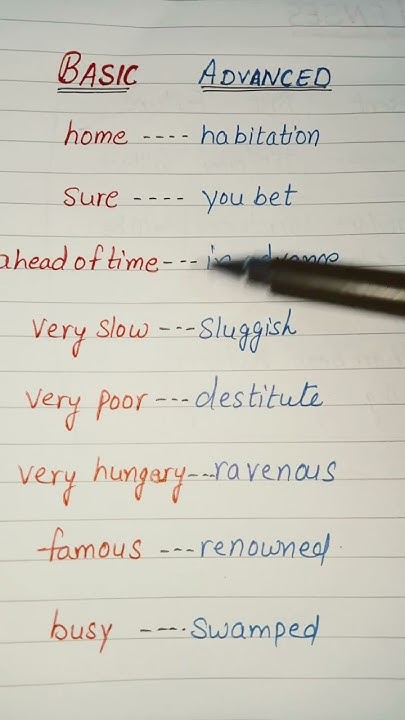 BASIC ADVANCED
home ---- habitation
Sure ---- you bet
ahead of time --- in advance
very slow --- Sluggish
very poor --- destitute
very hungary --- ravenous
famous --- renowned
busy ---- Swamped